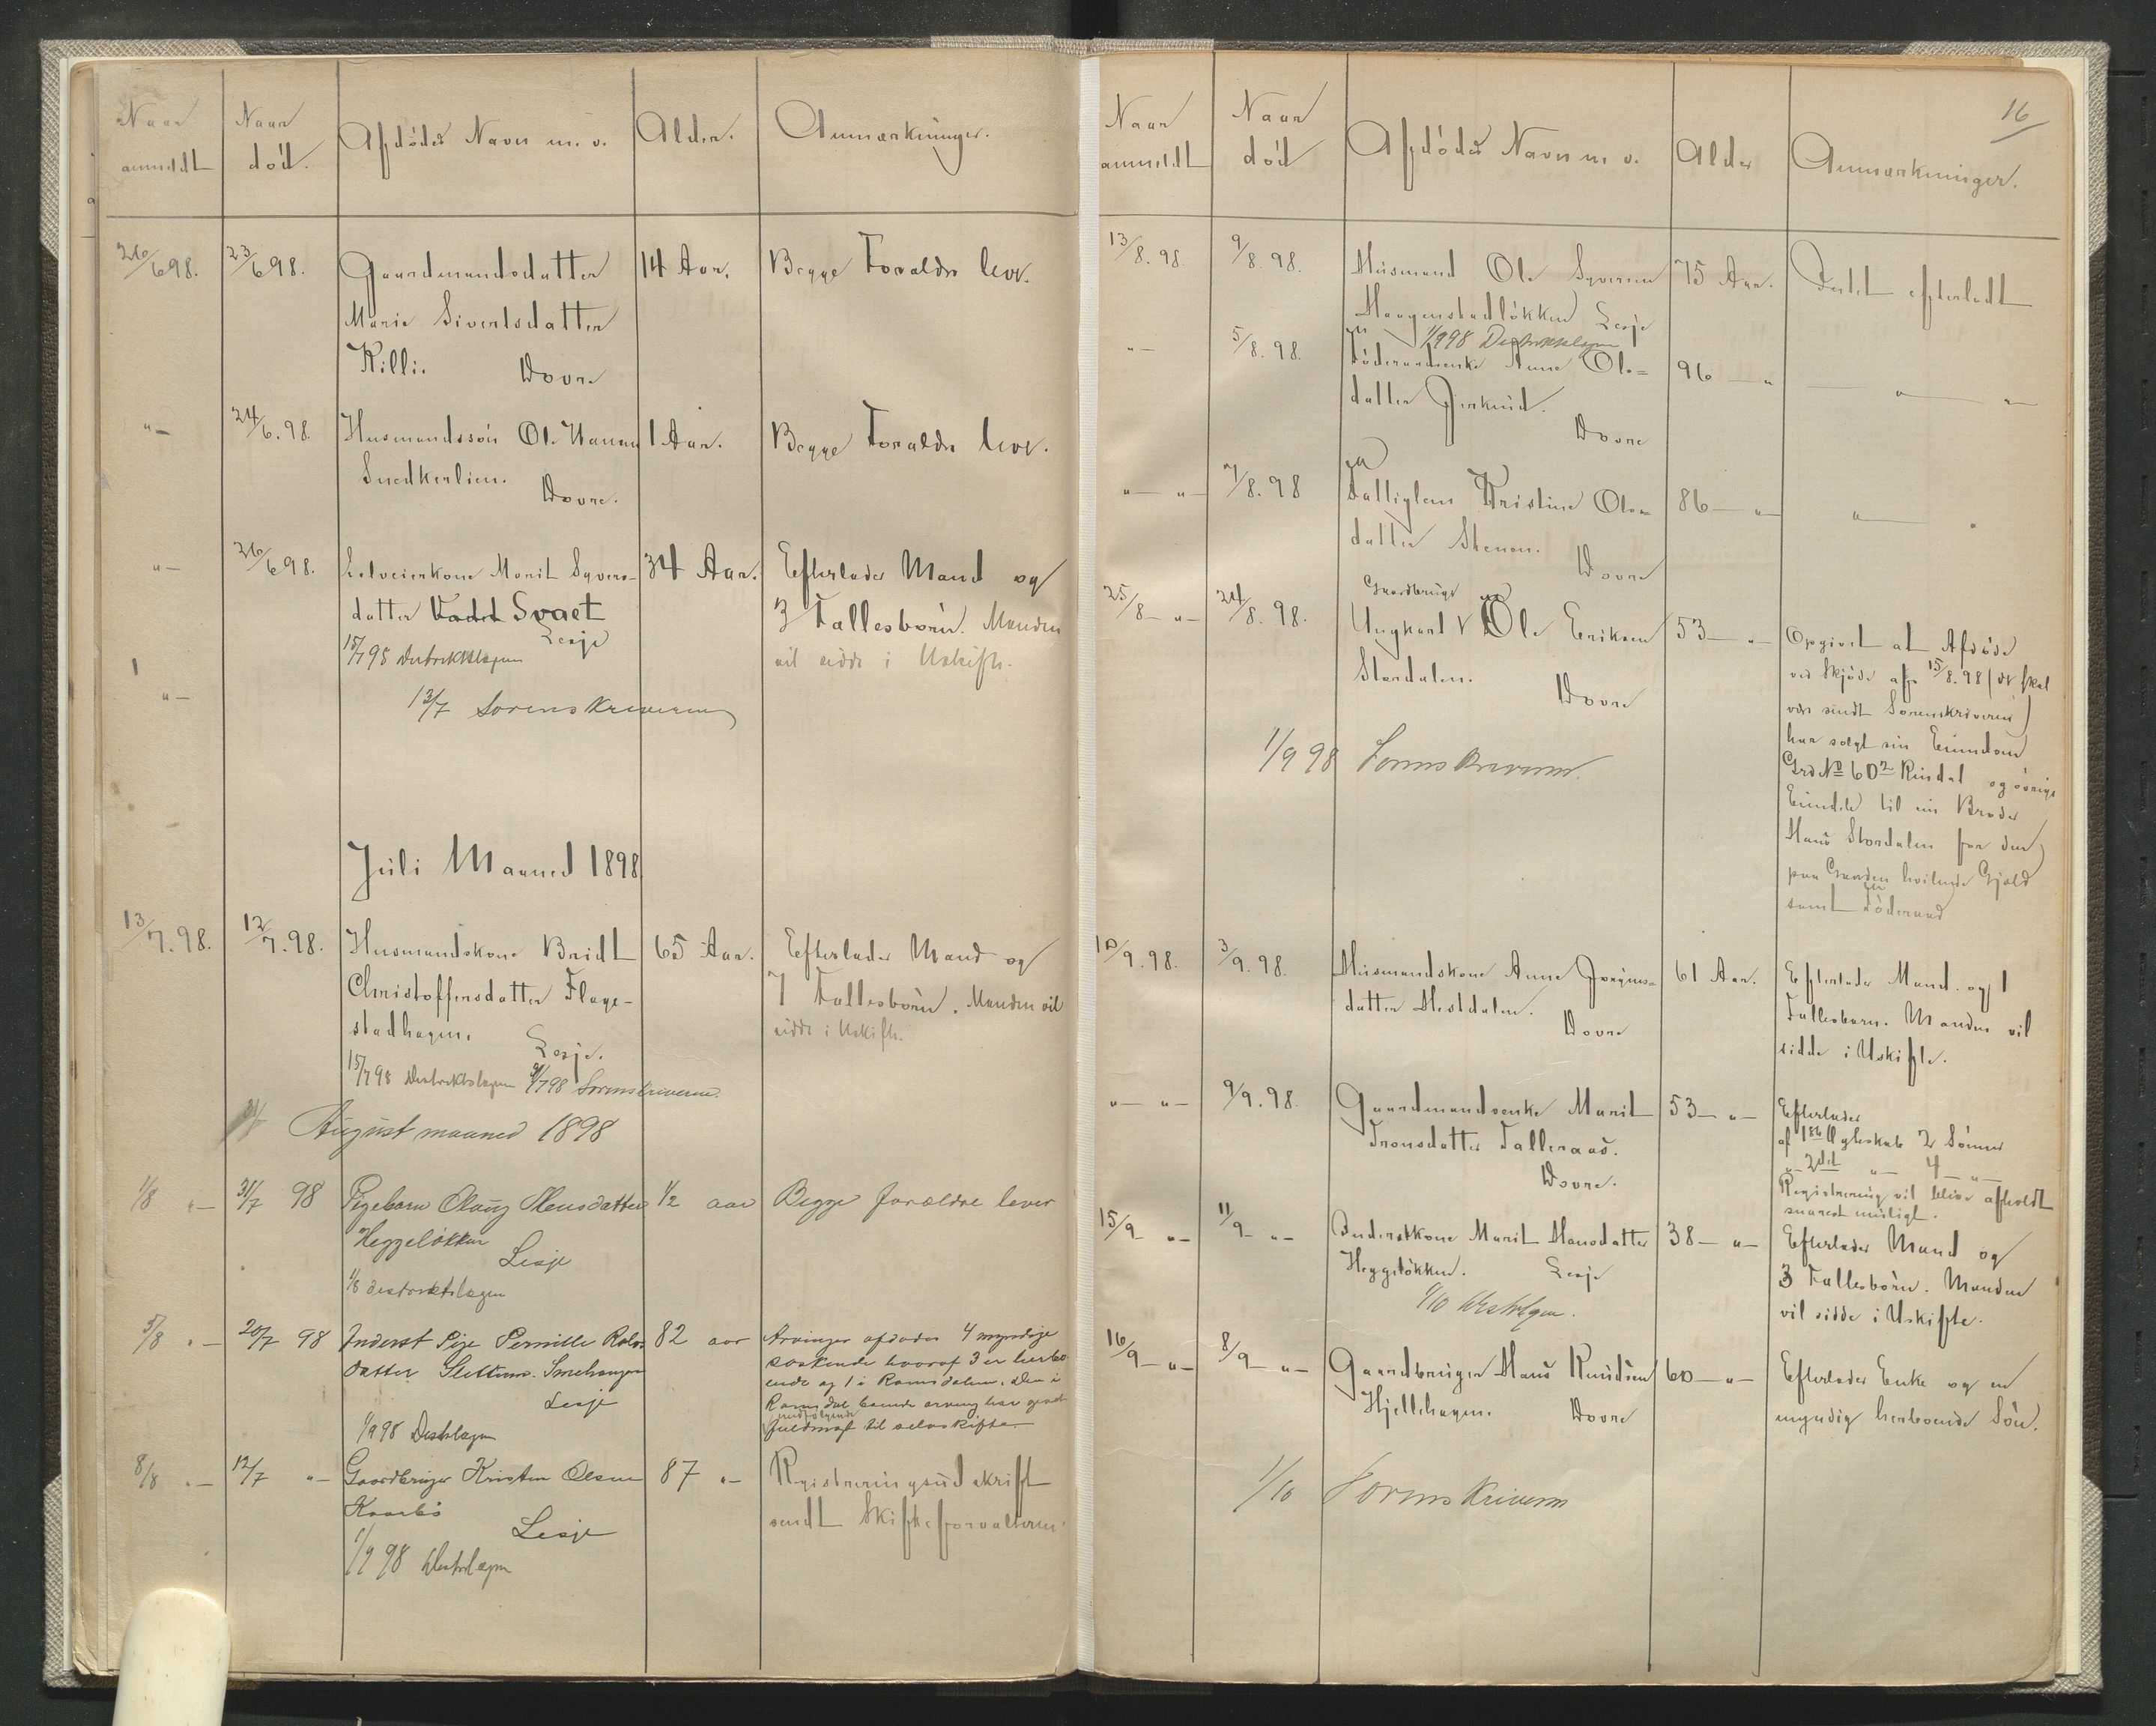 Naar anmeldt
Naar død.
Afdødes Navn m. v.
Alder.
Anmærkninger.
26/6 98.
23/6 98.
Gaardmandsdatter
14 Aar.
Begge Forældre lever.
Marie Sivertsdatter
Killi. Dovre
"—
24/6.98.
Husmandssøn Ole Hansen
1 Aar.
Begge Forældre lever.
Snedkerlien.
Dovre.
"—
26/6 98.
Selveierkone Marit Syvers-
34 Aar.
Efterlader Mand og
datter Svaet
3 Fællesbørn. Manden
Lesje
vil sidde i Uskifte.
15/7 98 Destriktslægen
"—
13/7 Sorenskriveren
Juli Maaned 1898
13/7.98.
12/7.98.
Husmandskone Bridt
65 Aar.
Efterlader Mand og
Christoffersdatter Flage-
7 Fællesbørn. Manden vil
stadhagen.
sidde i Uskifte.
Lesje.
15/7 98 Destriktslægen /7 98 Sorenskriveren.
August maaned 1898
1/8 "—
31/7 98
Pigebarn Olaug Hansdatter
1/2 aar
Begge forældre lever
Heggeløkken
Lesje
1/8 destriktslægen
5/8 "—
20/7 98
Inderst Pige Pernille Rolvs
82 aar
Arvinger afdødes 4 myndige
datter Slettum. Smehaugen
søskende hvoraf 3 er herbo
Lesje
ende og 1 i Romsdalen. Den i
Romsdal boende arving har givet
indfølgende
1/9 98 Destrlægen
fuldmagt til selvskifte.
8/8 "—
12/7 "—
Gaardbruger Kristen Olsen
87 "—
Registreringsudskrift
Kaarbø
sendt Skifteforvalteren.
Lesje
1/9 98 Destrlægen
16
Naar anmeldt
Naar død
Afdødes Navn m. v.
Alder
Anmærkninger.
13/8.98.
9/8.98.
Husmand Ole Syversen
75 Aar.
Intet efterladt
Haugenstadløkken Lesje
1/9 98 Destriktslægen
"—
5/8.98.
Føderaadsenke Anne Ols-
96 — "
— " — "—
datter Jerkind.
Dovre
"— "—
7/8.98
Fattiglem Kristine Ols-
86 — "—
" — "
datter Stenen.
Dovre
Gaardbruger
25/8 — "—
24/8.98.
Ungkarl V Ole Eriksen
53 — "—
Opgivet at Afdøde
Stordalen.
ved Skjøde af 15/8.98 (der skal
Dovre
være sendt Sorenskriveren)
har solgt sin Eiendom
1/9 98 Sorenskriveren.
Grd No 60² Rindal og øvrige
Eiendele til sin Broder
Hans Stordalen for den
paa Gaarden hvilende Gjæld
samt Føderaad
10/9.98.
3/9.98.
Husmandskone Anne Jørgens-
61 Aar.
Efterlader Mand og 1
datter Hestdalen.
Fællesbarn. Manden vil
Dovre
sidde i Uskifte.
"— "—
9/9.98.
Gaardmandsenke Marit
53 — "—
Efterlader
Tronsdatter Talleraas.
af 1ste Ægteskab 2 Sønner
Dovre.
"— 2det "— 4 — "—
Registrering vil blive afholdt
snarest muligt.
15/9 "—
11/9 "—
Inderstkone Marit Hansdatter
38 — "—
Efterlader Mand og
Heggeløkken. Lesje
3 Fællesbørn. Manden
1/10 Destrlægen.
vil sidde i Uskifte.
16/9 — "—
8/9 — "—
Gaardbruger Hans Knudsen
60 — "—
Efterlader Enke og en
Hjellehagen. Dovre
myndig herboende Søn.
1/10 Sorenskriveren